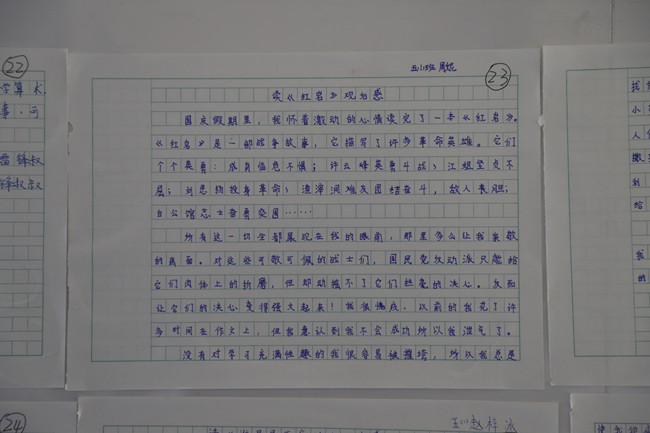 22
学算术
事·问
雷锋叔
锋叔叔
五(1)班 周妮
23
读《红岩》观后感
国庆假期里，我怀着激动的心情读完了一本《红岩》。
《红岩》是一部战争故事，它描写了许多革命英雄。它们
个个英勇：成岗临危不惧；许云峰英勇斗敌；江姐坚贞不
屈；刘思扬投身革命；渣滓洞难友团结奋斗，敌人丧胆；
白公馆志士奋勇突围……
所有这一切全都展现在我的眼前，那是多么让我崇敬
的画面。对这些可歌可佩的战士们，国民党反动派只能给
它们肉体上的折磨，但却动摇不了它们丝毫的决心。反而
让它们的决心变得强大起来！我很愧疚，以前的我花了许
多时间在作文上，但我意认到我不会成功所以我泄气了。
没有对学习充满性趣的我很容易被摧垮，所以我总是
我
小
人
撒
到
给
我
的
24
五(1)赵梓冰